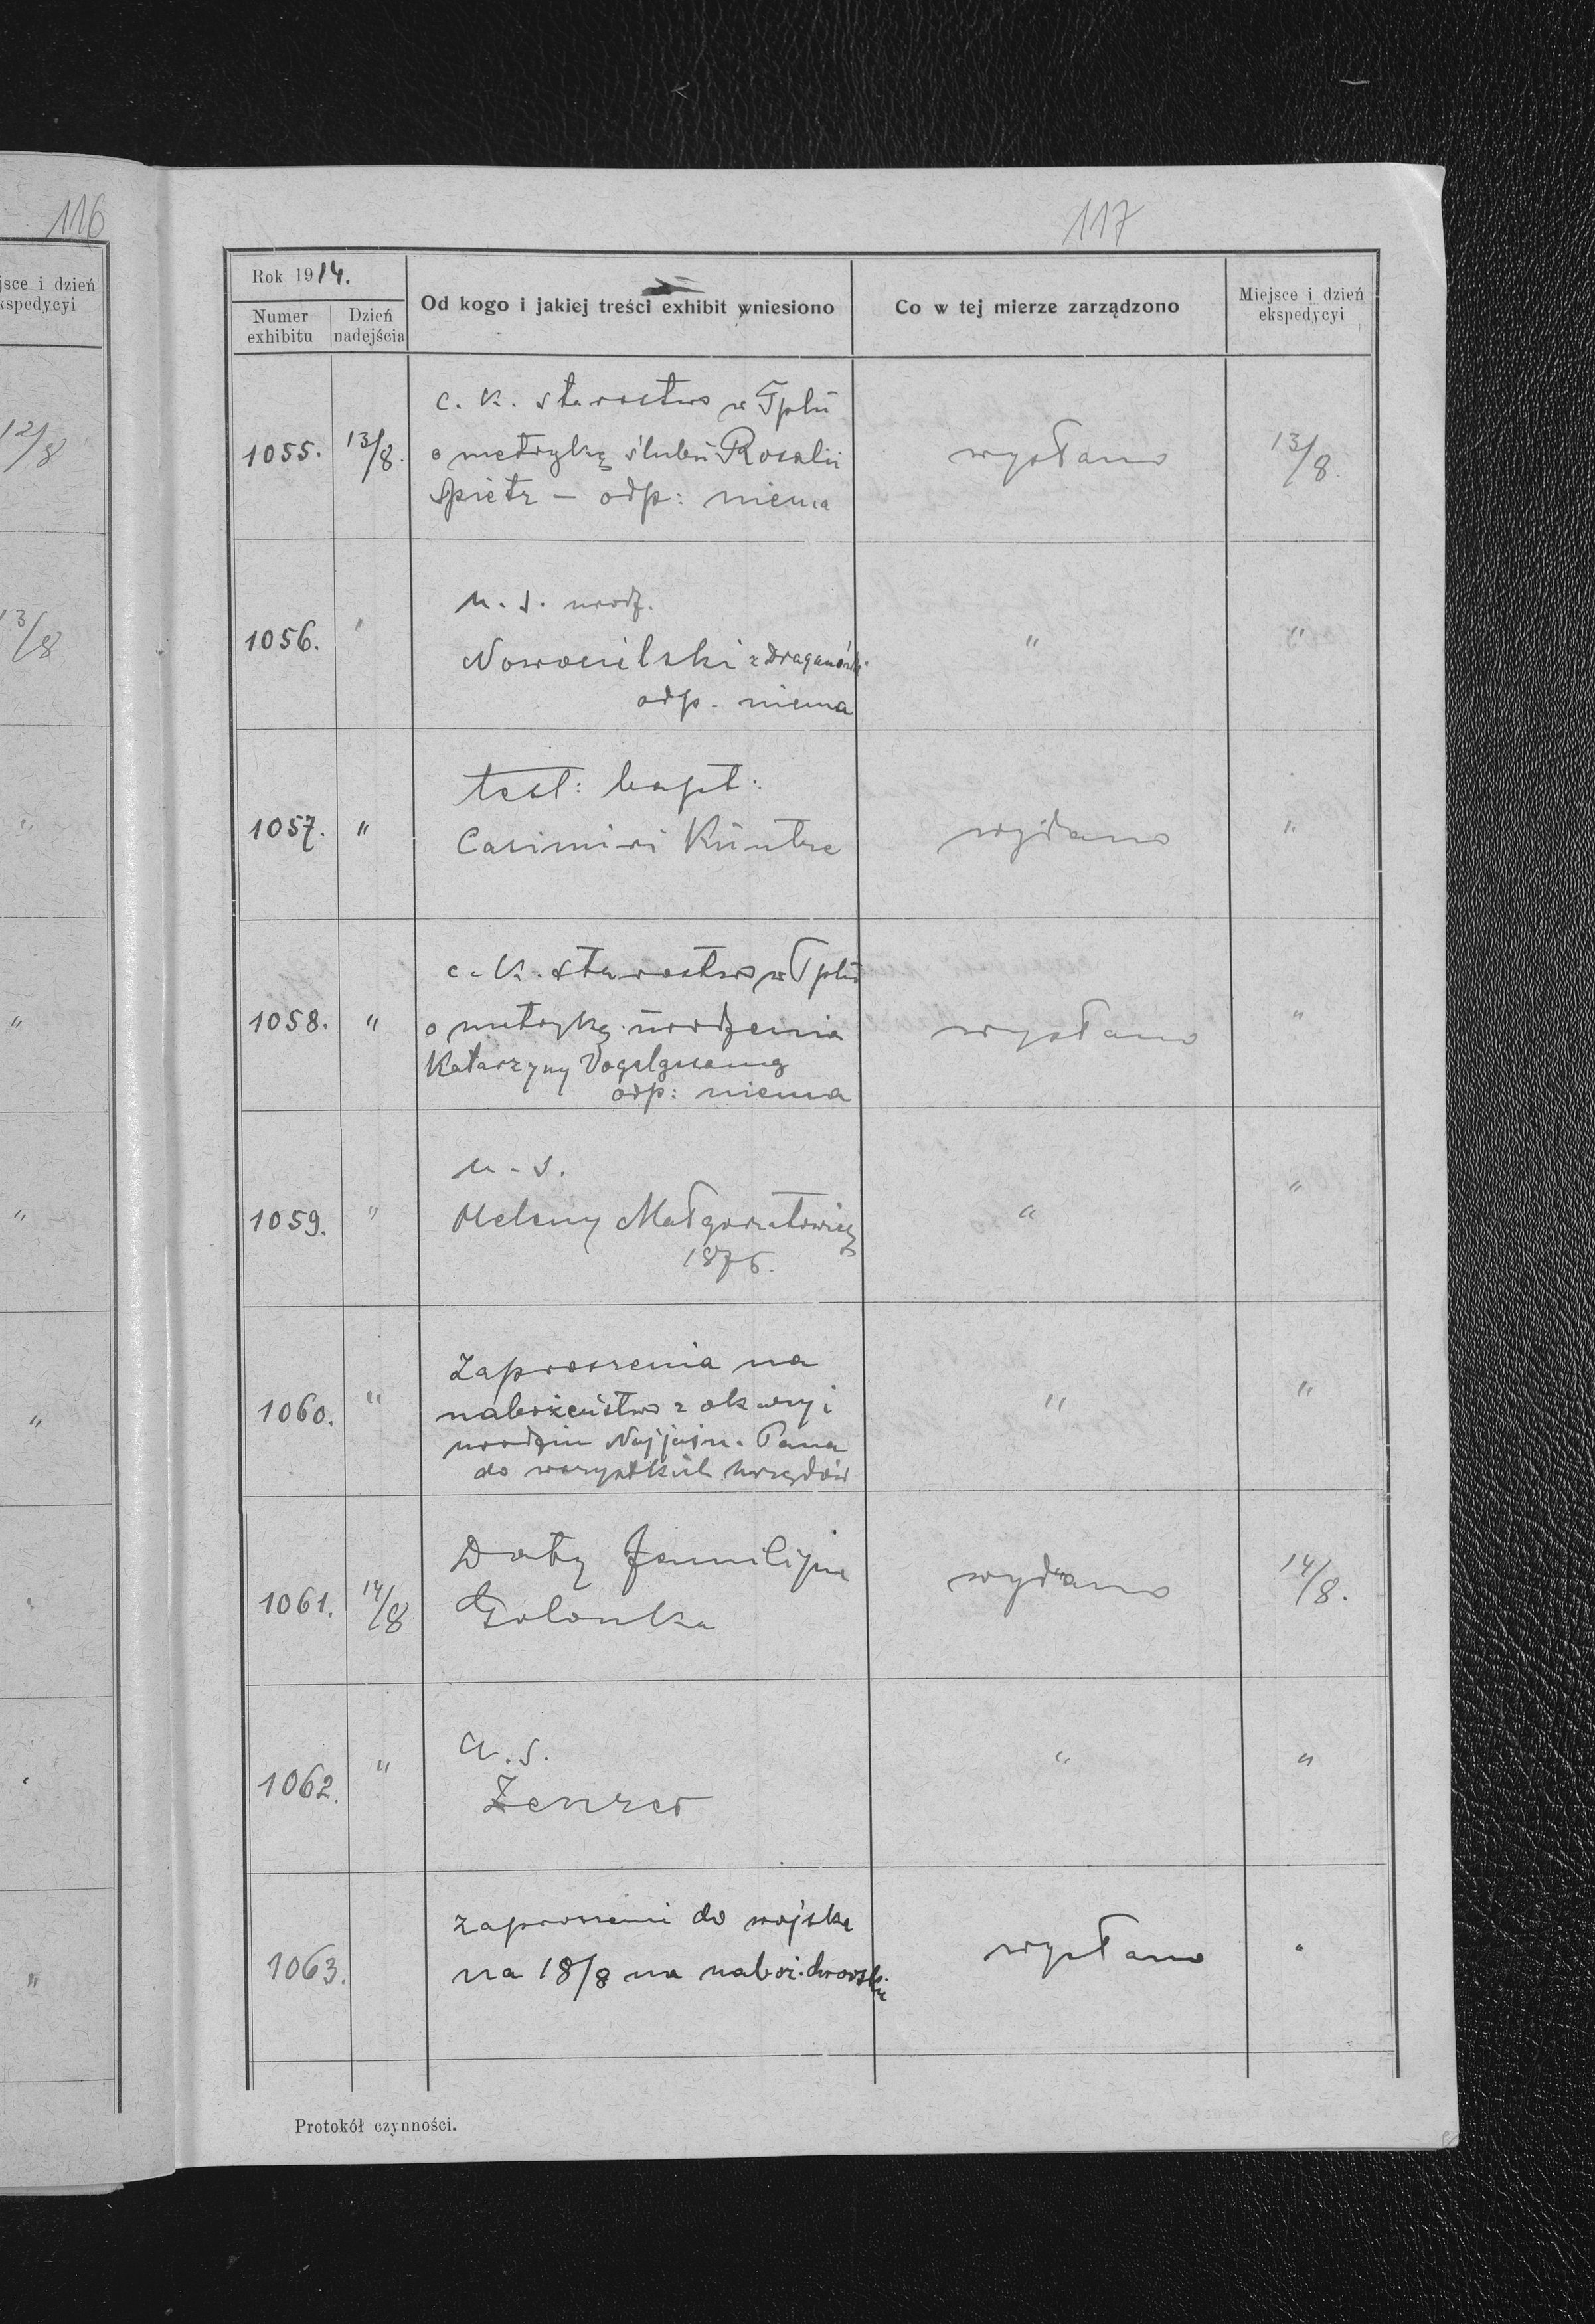 116
jsce i dzień
kspedycyi
12/8
13/8
"
"
"
"
"
"
"
117
Rok 1914.
Numer exhibitu
Dzień nadejścia
Od kogo i jakiej treści exhibit wniesiono
Co w tej mierze zarządzono
Miejsce i dzień ekspedycyi
1055. 13/8. c. k. starostwo w Tplu wysłano 13/8.
o metrykę ślubu Rosalii
Spietz — odp: niema
1056. " u. s. urodz. " "
Nowosielski z Draganówki
odp. niema
1057. " test: bapt: wydano "
Casimiri Küntze
1058. " c. k. starostwo w Tplu wysłano "
o metrykę urodzenia
Katarzyny Vogelgesang
odp: niema
1059. " u. s. " "
Heleny Małgorzatowicz
1876.
1060. " Zaproszenia na " "
nabożeństwo z okazyi
urodzin Najjaśn. Pana
do wszystkich urzędów
1061. 14/8 Daty familijne wydano 14/8.
Golonka
1062. " u. s. " "
1063. zaproszeni do wojska wysłano "
na 18/8 na naboż. dworskie
Protokół czynności.